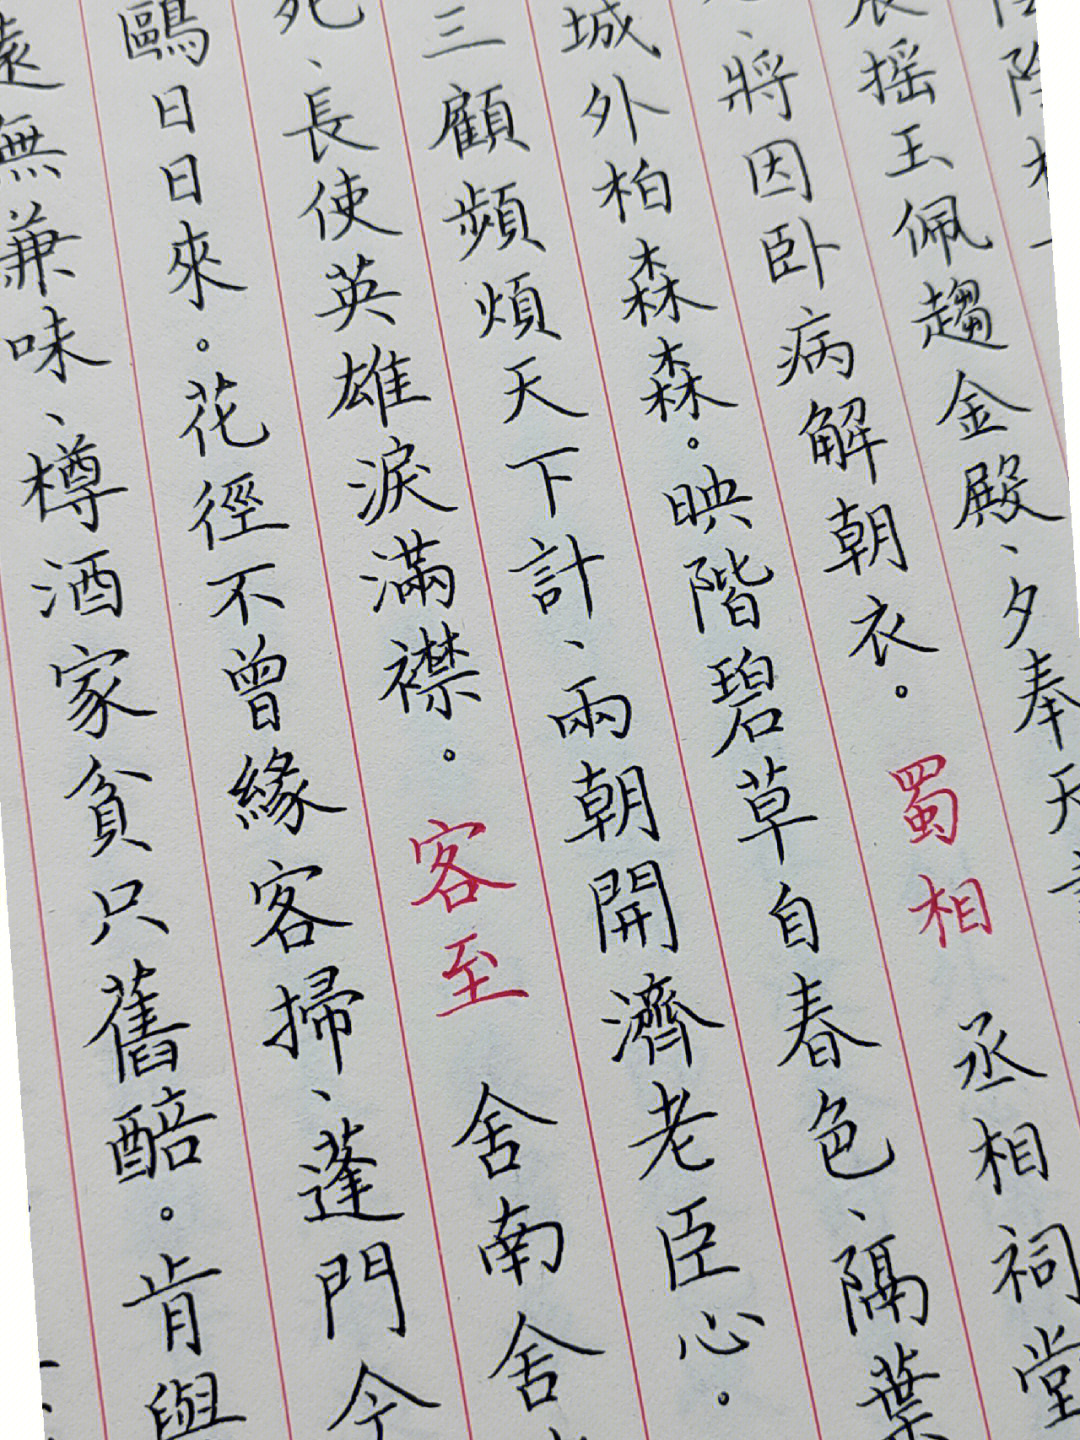 搖玉佩趨金殿、夕奉天
將因卧病解朝衣。蜀相 丞相祠堂
城外柏森森。映階碧草自春色、隔葉
三顧頻煩天下計、兩朝開濟老臣心。
死、長使英雄淚滿襟。客至 舍南舍
鷗日日來。花徑不曾緣客掃、蓬門今
遠無兼味、樽酒家貧只舊醅。肯與